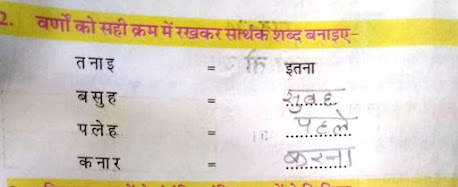 2. वर्णों को सही क्रम में रखकर सार्थक शब्द बनाइए–
त ना इ = इतना
ब सु ह = सुबह
प ले ह = पहले
क ना र = करना